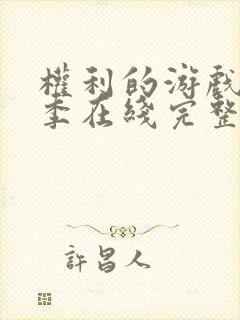 權利的游戲
季在綫完整
許昌人